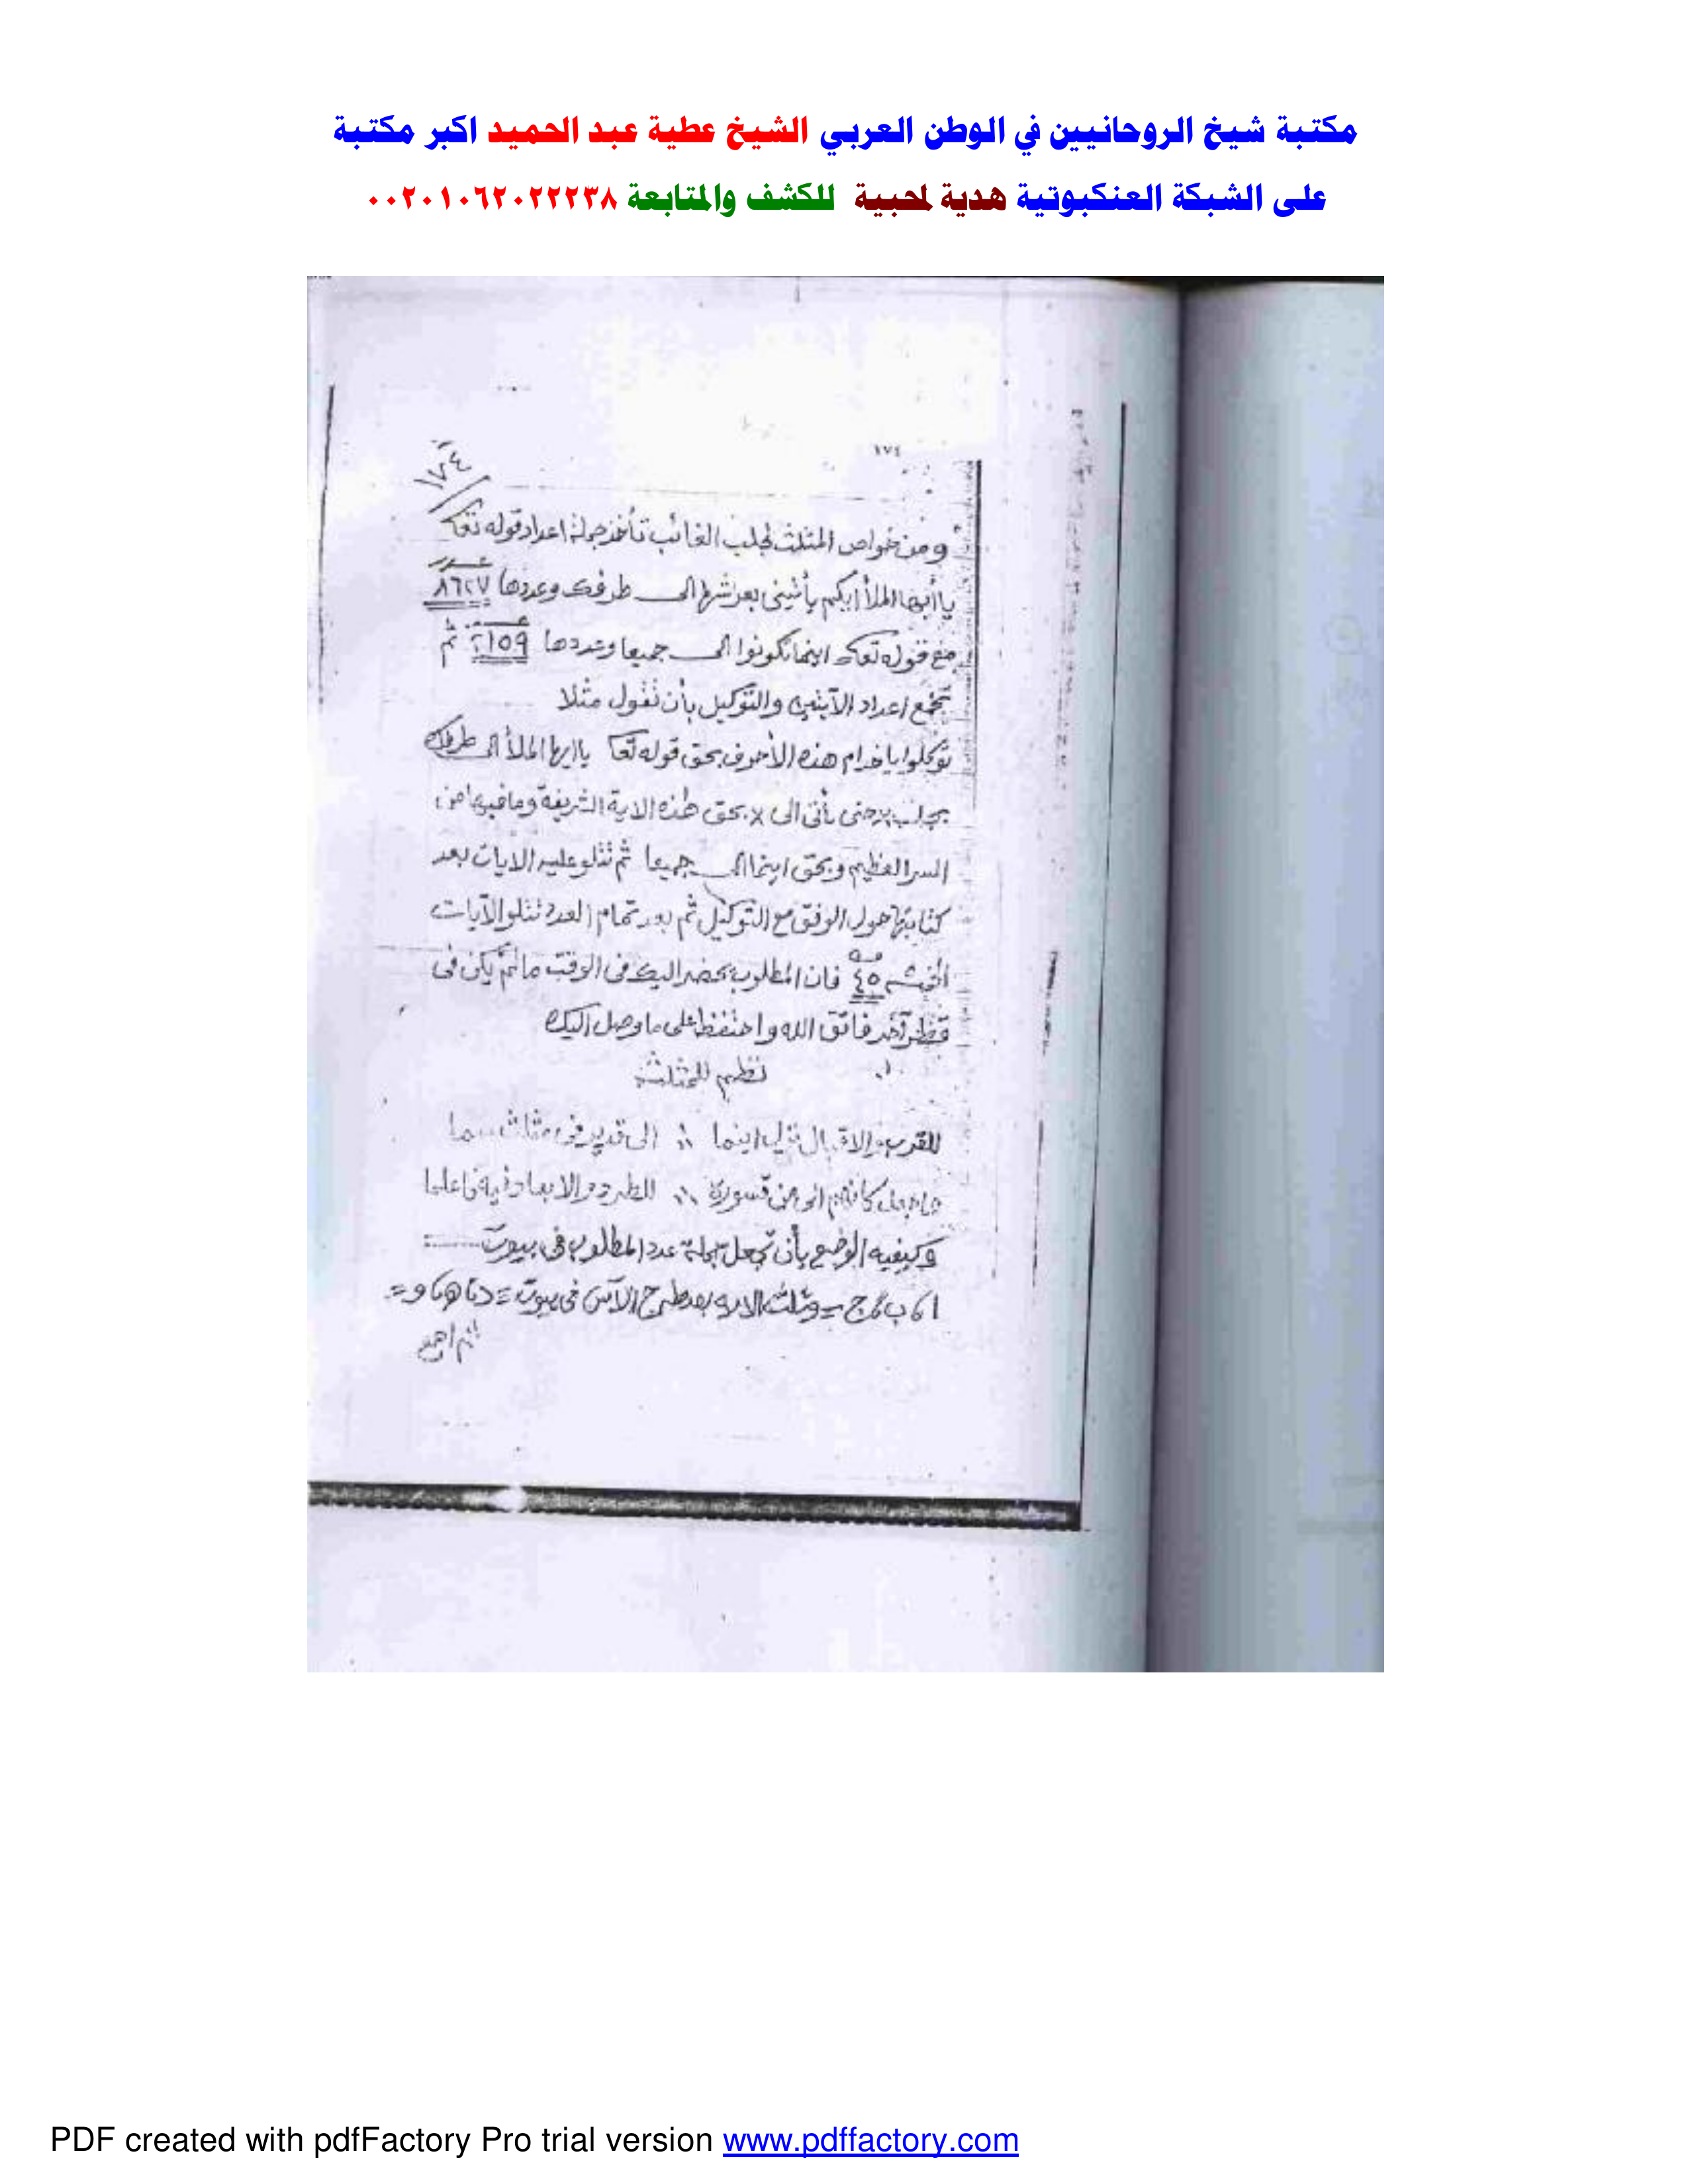 مكتبة شيخ الروحانيين في الوطن العربي الشيخ عطية عبد الحميد اكبر مكتبة
على الشبكة العنكبوتية هدية لمحبية للكشف والمتابعة ٠٠٢٠١٠٦٢٠٢٢٢٣٨
١٧٤
١٧٤
ومن خواص المثلث لجلب الغائب تأخذ جملة اعداد قوله تعا
يا أيها الملأ أيكم يأتينى بعرشها الى طرفك وعددها ٨٦٢٧
مع قوله تعا اينما تكونوا الى جميعا وعددها ٢١٥٩ ثم
تجمع اعداد الآيتين والتوكيل بأن تقول مثلا
توكلوا يا خدام هذه الأحرف بحق قوله تعا يا ايها الملأ الى طرفك
بجلب حتى يأتى الى x بحق هذه الاية الشريفة وما فيها من
السر العظيم وبحق اينما الى جميعا ثم تتلو عليه الايات بعد
كتابتها حول الوفق مع التوكيل ثم بعد تمام العدد تتلو الآيات
٤٥ فان المطلوب يحضر اليك فى الوقت ما لم يكن فى
قطر آخر فاتق الله واحتفظ على ما وصل اليك
نظم للمثلث
للقرب والاقبال اينما الى قدير فى مثلث سما
كأنهم الى من قسورة للطرد والابعاد فيه فاعلما
وكيفيه الوضع بأن تجعل جملة عدد المطلوب فى بيوت
ا ب ج = بعد طرح فى بيوت =